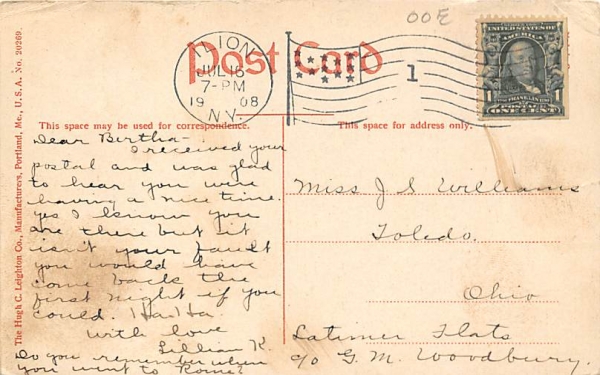 00E
Post Card
ILION
JUL 16
7-PM
1908
N.Y.
1
UNITED STATES OF AMERICA
FRANKLIN
1 POSTAGE 1
ONE CENT
This space may be used for correspondence.
This space for address only.
The Hugh C. Leighton Co., Manufacturers, Portland, Me., U. S. A. No. 20269.
Dear Bertha-
I received your
postal and was glad
to hear you were
having a nice time.
yes I know you
are there but it
isn't your fault
you would have
come back the
first night if you
could. Ha Ha
with love
Lillian K.
Do you remember when
you went to Rome?
Miss J S Williams
Toledo.
Ohio
Latimer Flats
c/o G. M. Woodbury.